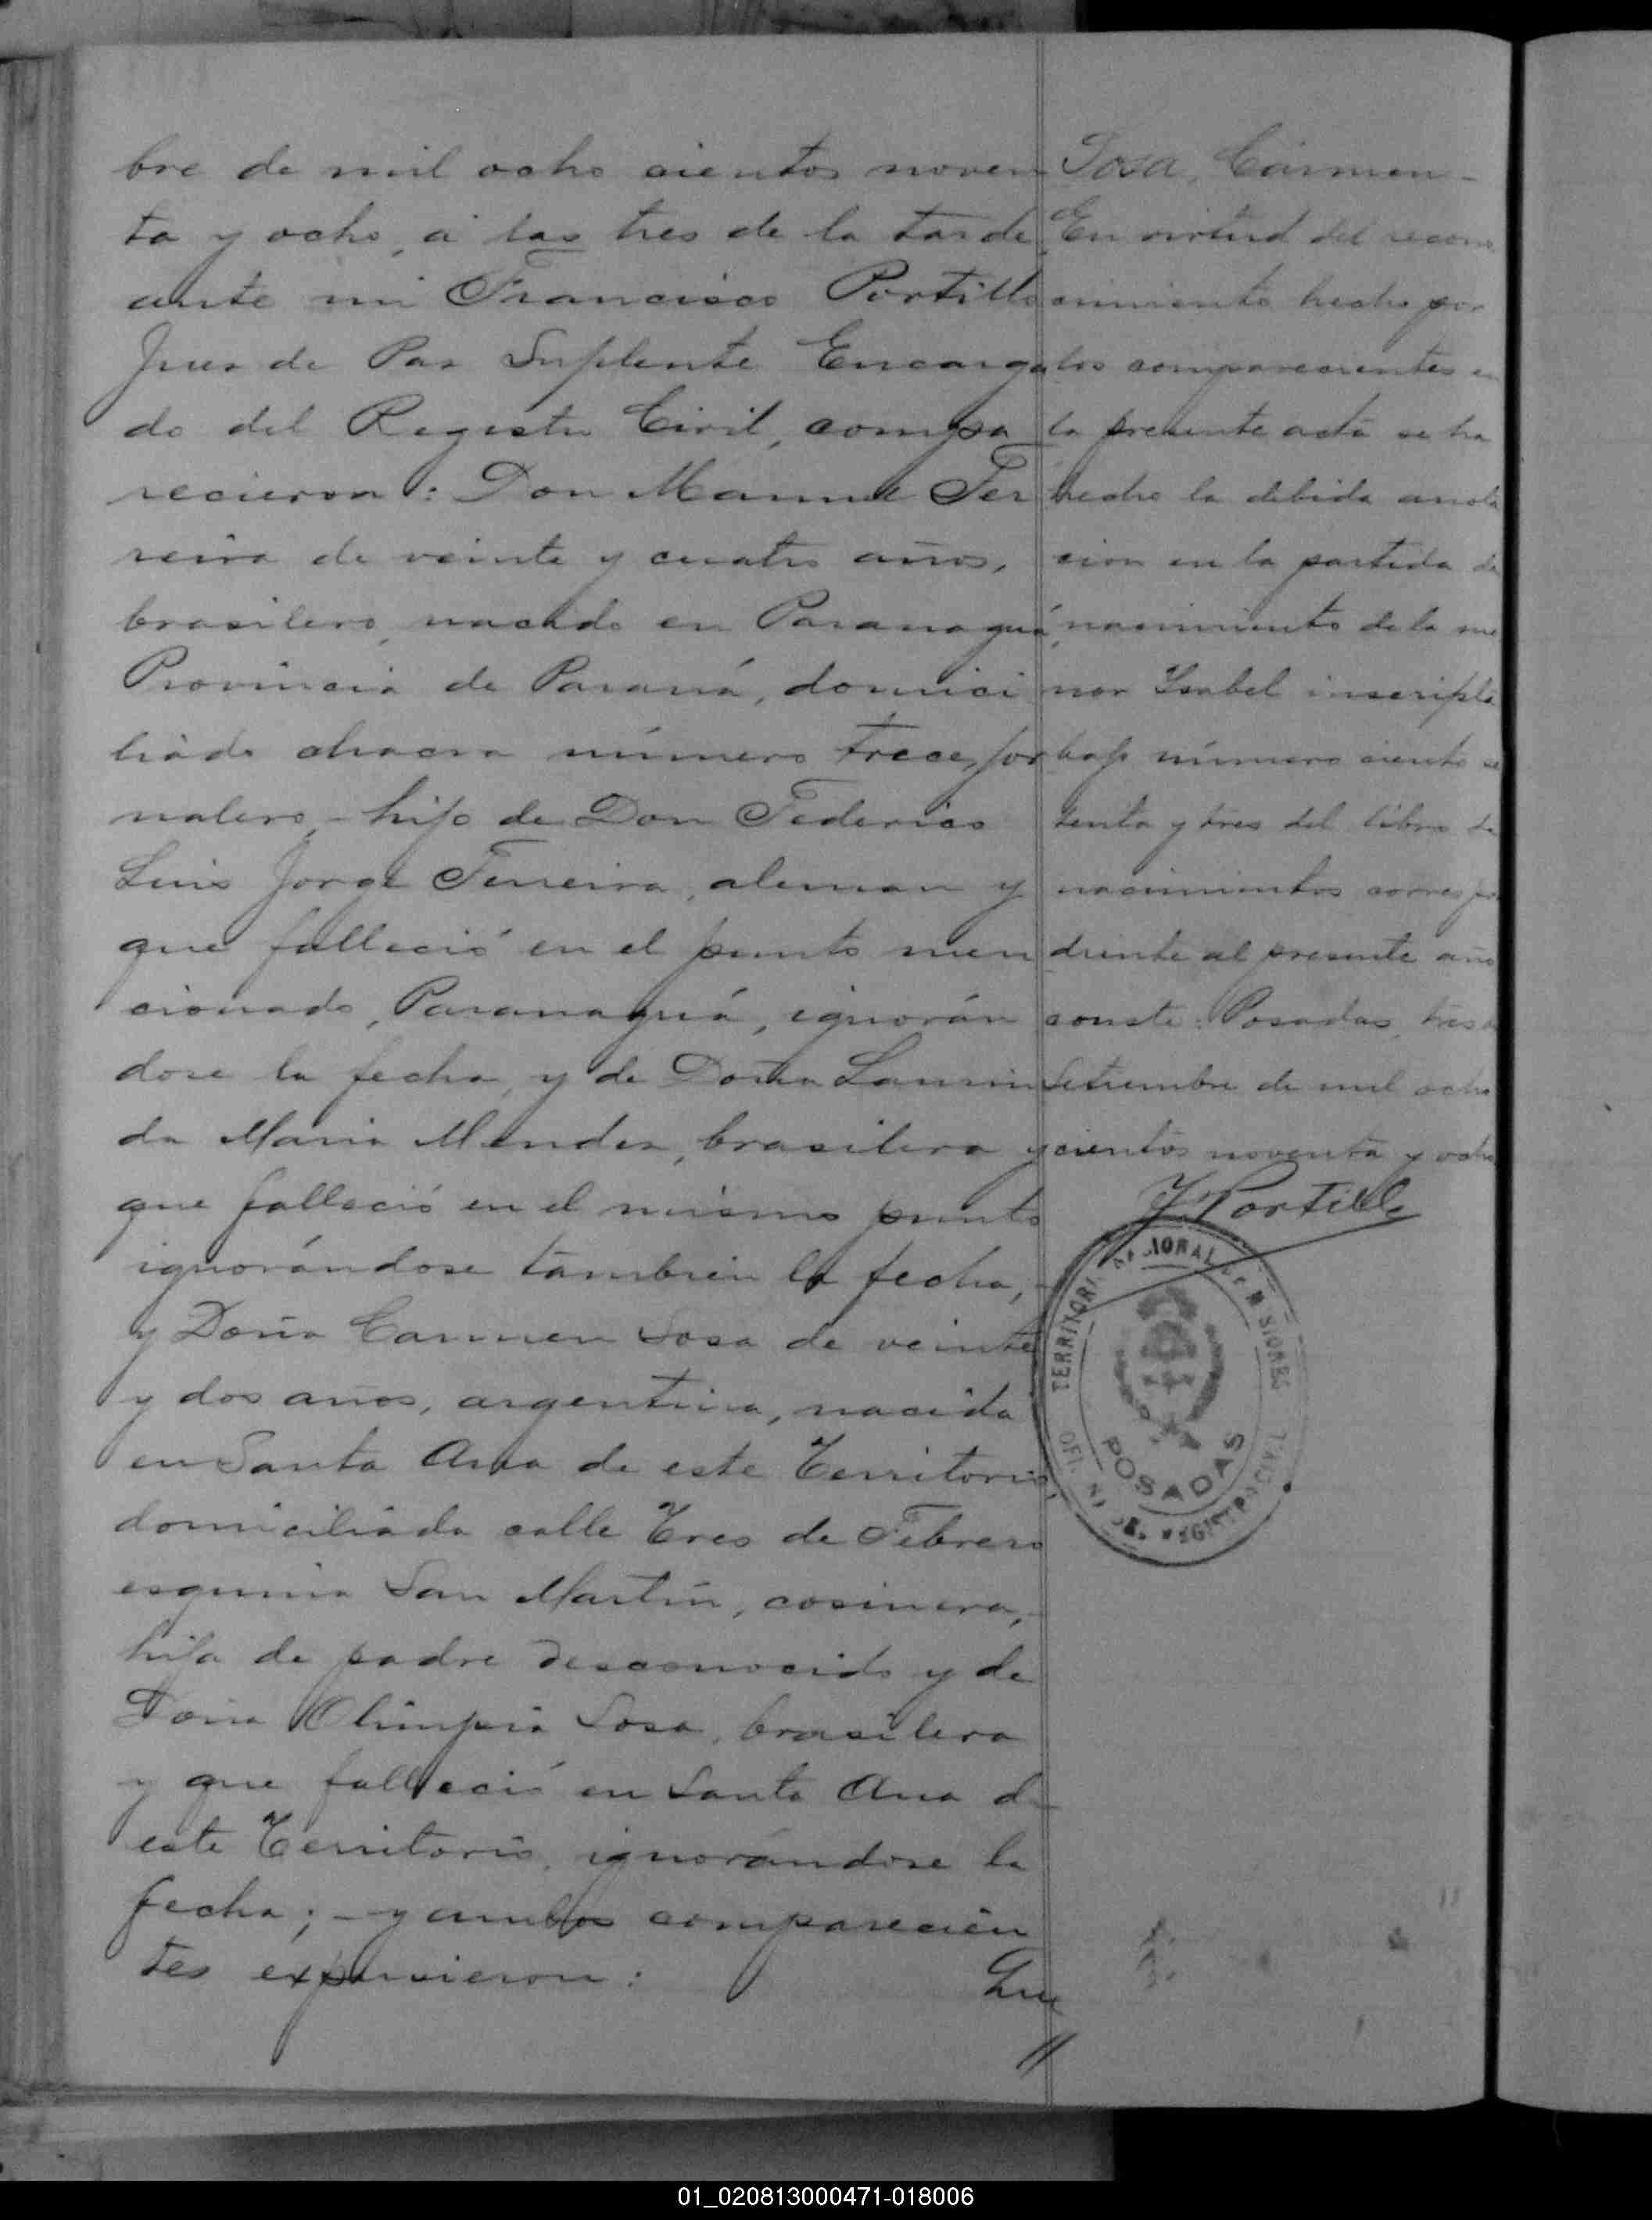 bre de mil ocho cientos noven
ta y ocho, á las tres de la tarde,
ante mi Francisco Portillo
Juez de Paz Suplente Encarga
do del Registro Civil, compa
recieron: Don Manuel Fer
reira de veinte y cuatro años,
brasilero, nacido en Paranaguá,
Provincia de Paraná, domici
liado chacra número trece, jor
nalero, - hijo de Don Federico
Luis Jorge Ferreira, aleman y
que falleció en el punto men
cionado, Paranaguá, ignorán
dose la fecha, y de Doña
da Maria Mendez, brasilera y
que falleció en el mismo punto
ignorándose tambien la fecha,
y Doña Carmen Sosa de veinte
y dos años, argentina, nacida
en Santa Ana de este Territorio,
domiciliada calle Tres de Febrero
esquina San Martin, cosinera,
hija de padre desconocido y de
Doña Olimpia Sosa, brasilera
y que falleció en Santa Ana de
este Territorio, ignorándose la
fecha; - y ambos comparecien
tes expusieron: Que
Sosa, Cármen -
En virtud del recono
cimiento hecho por
los comparecientes en
la presente acta se ha
hecho la debida anota
cion en la partida de
nacimiento de la me
nor Isabel inscripta
bajo número ciento se
tenta y tres del libro de
nacimientos correspon
diente al presente año
conste. Posadas, tres de
Setiembre de mil ocho
cientos noventa y ocho
F. Portillo
TERRITORIO NACIONAL DE MISIONES
POSADAS
OFICINA DEL REGISTRO CIVIL
01_020813000471-018006